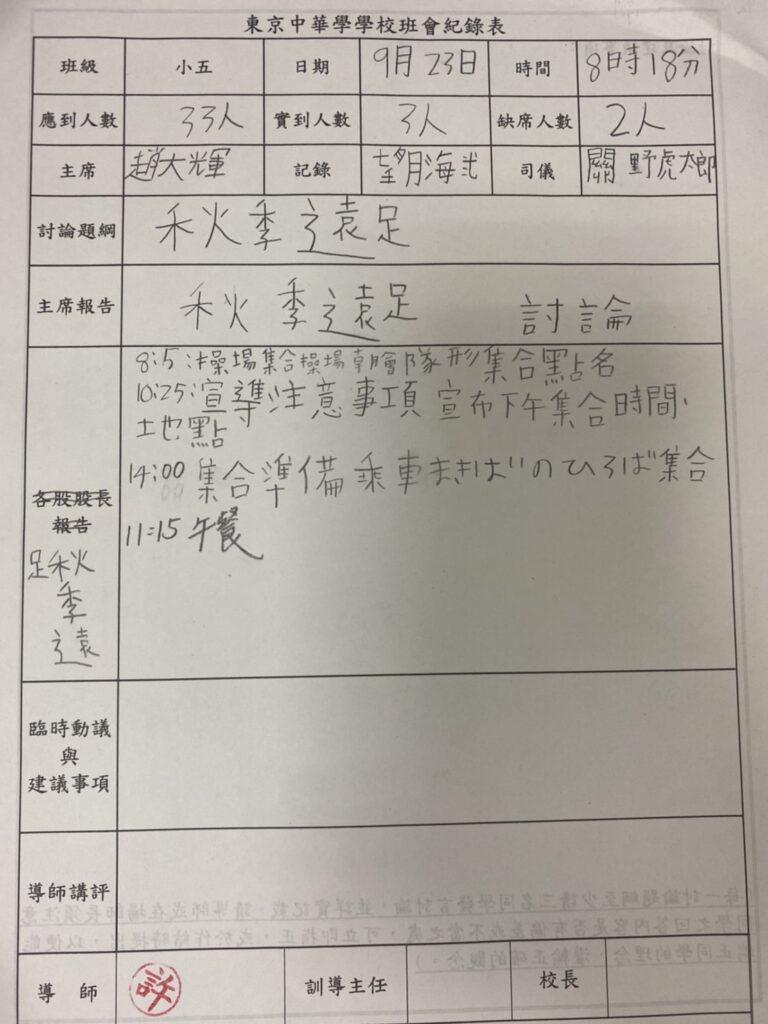 東京中華學學校班會紀錄表
班級 小五 日期 9月23日 時間 8時18分
應到人數 33人 實到人數 3人 缺席人數 2人
主席 趙大輝 記錄 望月海 司儀 關野虎太郎
討論題綱 秋季遠足
主席報告 秋季遠足 討論
各股股長
報告
足秋
季
遠
8:5:操場集合操場朝會隊形集合點名
10:25:宣導注意事項 宣布下午集合時間、
地點
14:00 集合準備乘車まきばのひろば集合
11:15 午餐
臨時動議
與
建議事項
導師講評
導師 許 訓導主任 校長